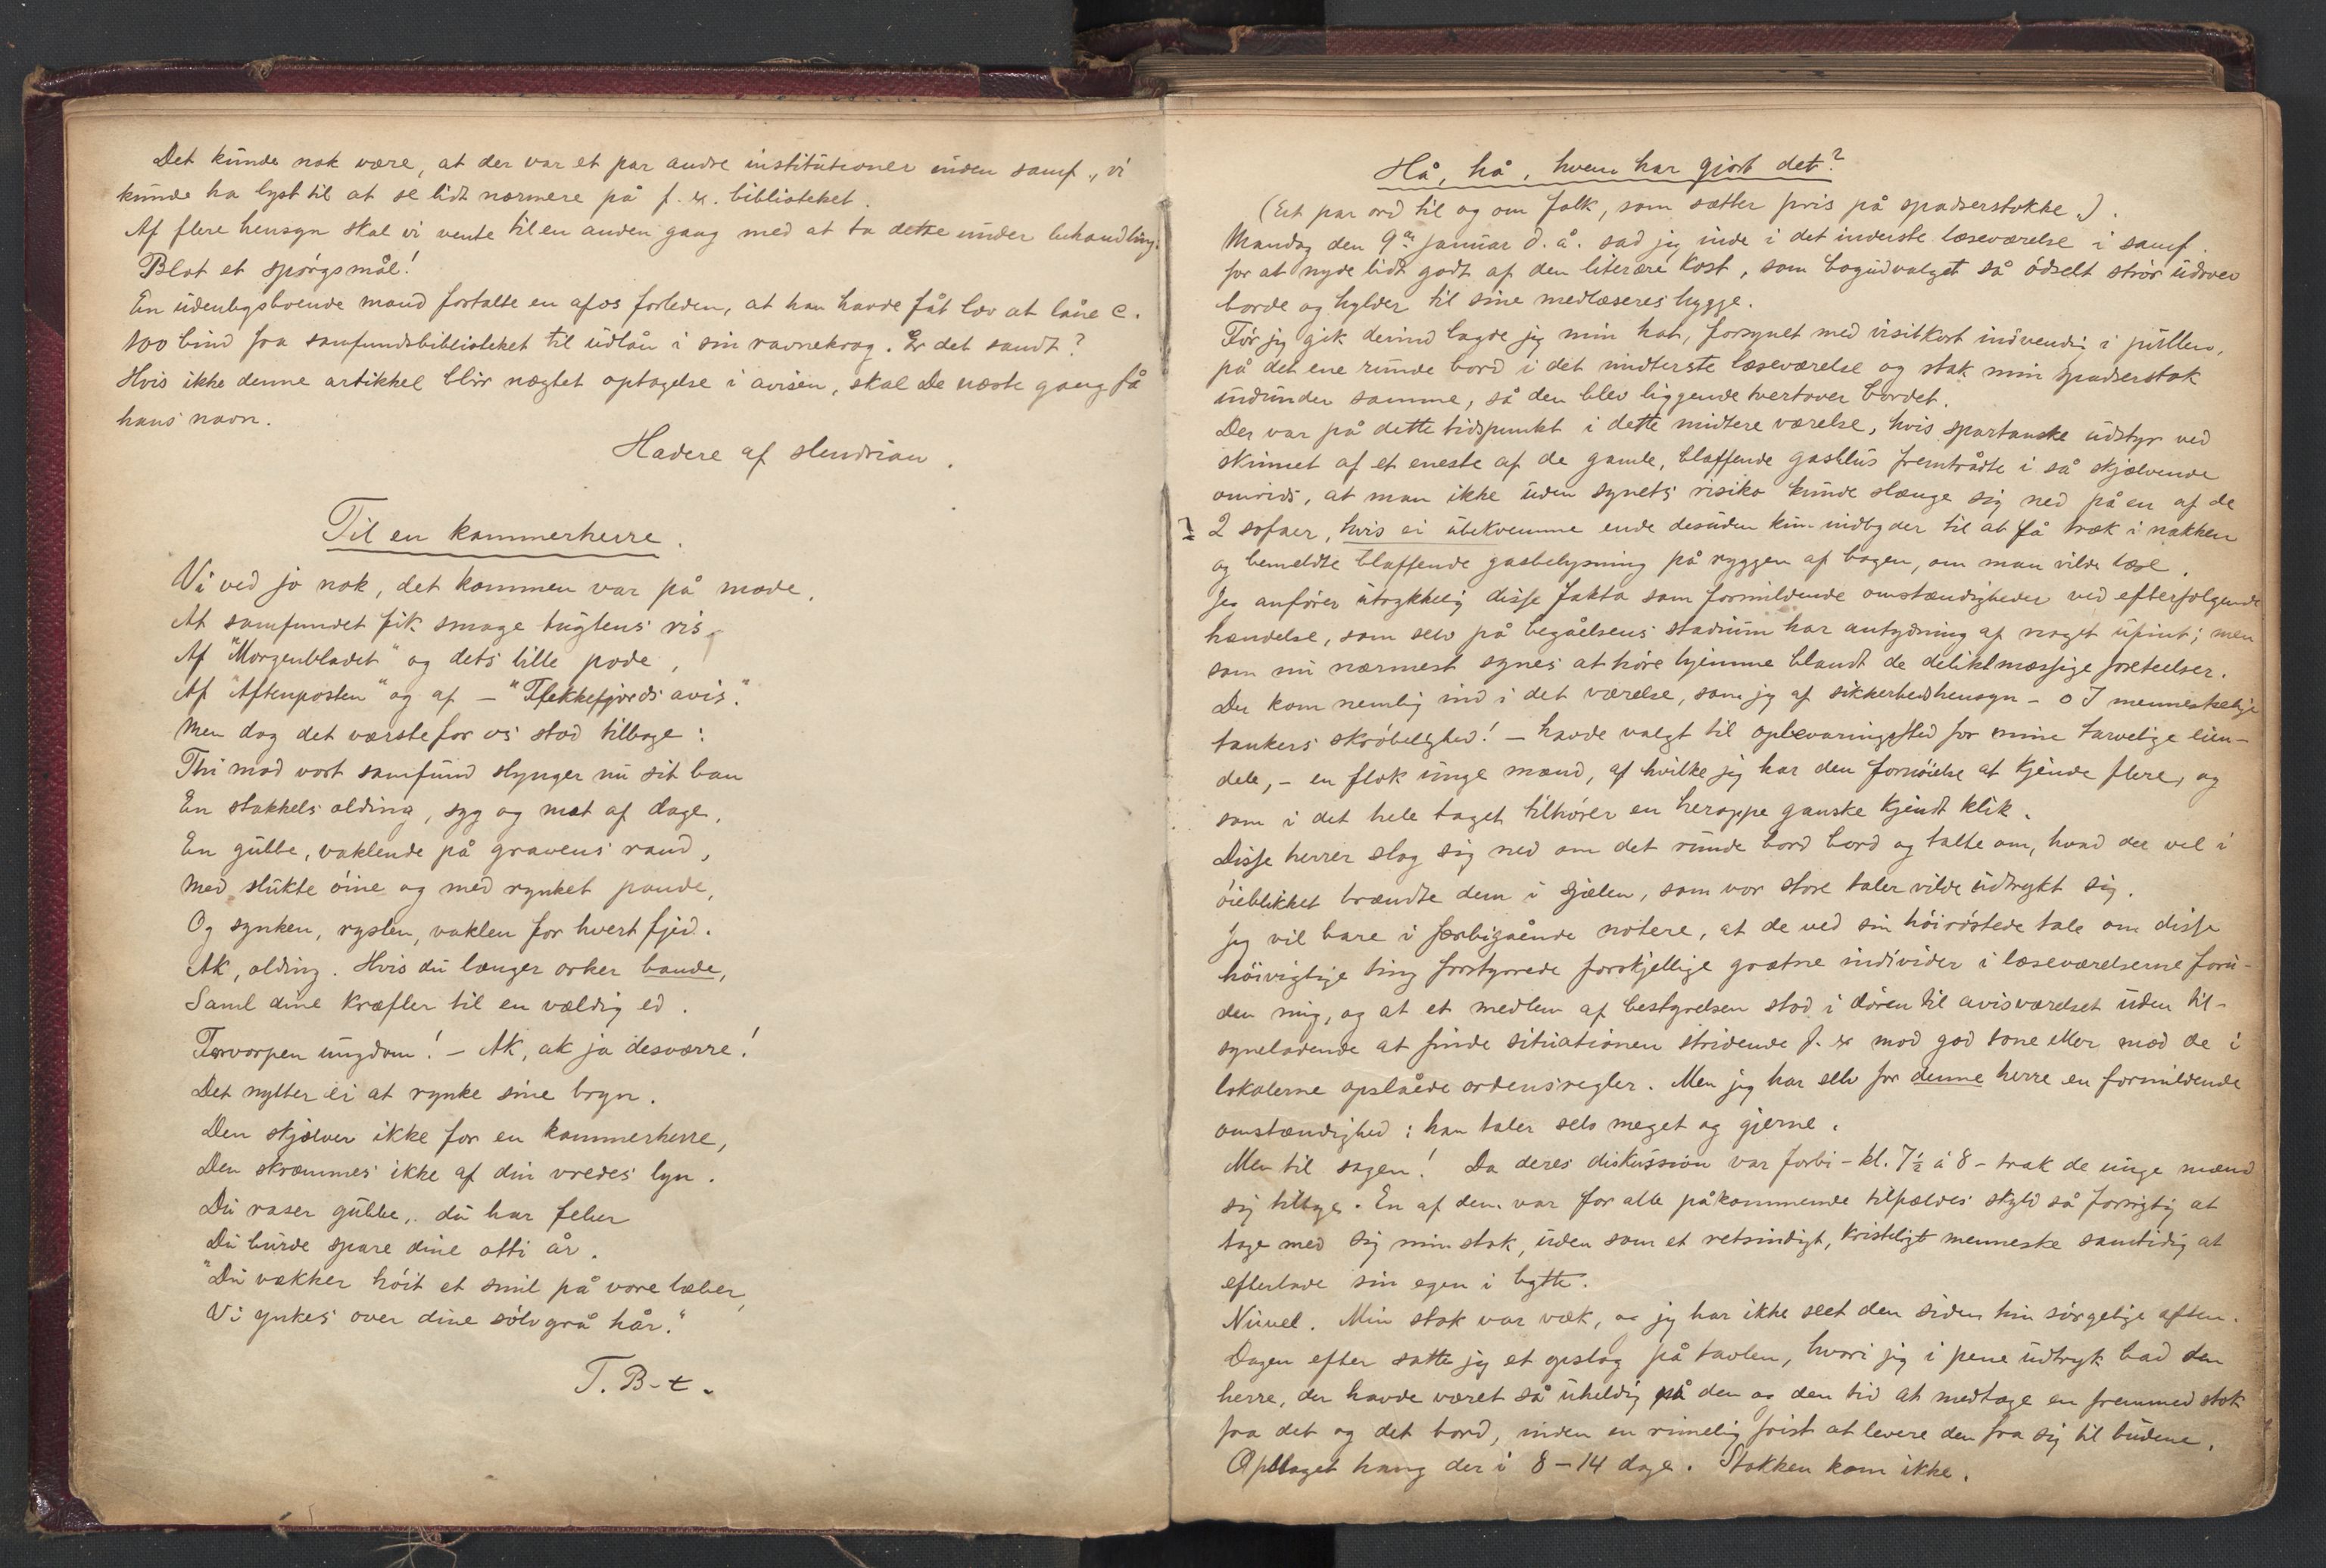 Det kunde nok være, at der var et par andre institutioner inden samf., vi
kunde ha lyst til at se lidt nærmere på f. ex. biblioteket.
Af flere hensyn skal vi vente til en anden gang med at ta dette under behandling.
Blot et spørgsmål!
En udenbysboende mand fortalte en af os forleden, at han havde fåt lov at låne c.
100 bind fra samfundsbiblioteket til udlån i sin ravnekrog. Er det sandt?
Hvis ikke denne artikkel blir nægtet optagelse i avisen, skal De næste gang få
hans navn.
Hadere af slendrian.
Til en kammerherre.
Vi ved jo nok, det kommen var på mode,
At samfundet fik smage tugtens ris
Af "Morgenbladet" og dets lille pode,
Af "Aftenposten" og af – "Flekkefjords avis".
Men dog det værste for os stod tilbage:
Thi mod vort samfund slynger nu sit ban
En stakkels olding, syg og mæt af dage,
En gubbe, vaklende på gravens rand,
Med slukte öine og med rynket pande,
Og synken, rysten, vaklen for hvert fjed.
Ak, olding. Hvis du længer orker bande,
Saml dine kræfter til en vældig ed.
Forvorpen ungdom! – Ak, ak ja desværre!
Det nytter ei at rynke sine bryn.
Den skjælver ikke for en kammerherre,
Den skræmmes ikke af din vredes lyn.
Du raser gubbe, du har feber
Du burde spare dine otti år.
"Du vækker höit et smil på vore læber,
Vi ynkes over dine sölvgrå hår."
T. B-t.
Hå, hå, hvem har gjort det?
(Et par ord til og om folk, som sætter pris på spadserstokke.).
Mandag den 9de januar d. å. sad jeg inde i det inderste læseværelse i samf.
for at nyde lidt godt af den literære kost, som bogudvalget så ödselt strör udover
borde og hylder til sine medlæseres hygge.
För jeg gik derind lagde jeg min hat, forsynet med visitkort indvendig i pullen,
på det ene runde bord i det midterste læseværelse og stak min spadserstok
indunder samme, så den blev liggende tvertover bordet.
Der var på dette tidspunkt i dette midtere værelse, hvis spartanske udstyr ved
skinnet af et eneste af de gamle, blaffende gasblus fremtrådte i så skjælvende
omrids, at man ikke uden synets risiko kunde slænge sig ned på en af de
? 2 sofaer, hvis ei ubekvemme ende desuden kun indbyder til at få træk i nakken
og bemeldte blaffende gasbelysning på ryggen af bogen, om man vilde læse.
Jeg anförer utrykkelig disse fakta som formildende omstændigheder ved efterfölgende
hændelse, som selv på begåelsens stadium har antydning af noget ufint; men
som nu nærmest synes at höre hjemme blandt de deliktmæssige foreteelser.
Der kom nemlig ind i det værelse, som jeg af sikkerhedshensyn – o I menneskelige
tankers skröbelighed! – havde valgt til opbevaringssted for mine tarvelige eien-
dele, – en flok unge mænd, af hvilke jeg har den fornöielse at kjende flere, og
som i det hele taget tilhörer en heroppe ganske kjendt klik.
Disse herrer slog sig ned om det runde bord bord og talte om, hvad der vel i
öieblikket brændte dem i sjælen, som vor store taler vilde udtrykt sig.
Jeg vil bare i forbigående notere, at de ved sin höiröstede tale om disse
höivigtige ting forstyrrede forskjellige grætne individer i læseværelserne foru-
den mig, og at et medlem af bestyrelsen stod i dören til avisværelset uden til-
syneladende at finde situationen stridende f. ex mod god tone eller mod de i
lokalerne opslåede ordensregler. Men jeg har selv for denne herre en formildende
omstændighed: han taler selv meget og gjerne.
Men til sagen! Da deres diskussion var forbi – kl. 7½ à 8 – trak de unge mænd
sig tilbage. En af dem var for alle påkommende tilfældes skyld så forsigtig at
tage med sig min stok, uden som et retsindigt, kristeligt menneske samtidig at
efterlade sin egen i bytte.
Nuvel. Min stok var væk, og jeg har ikke seet den siden hin sörgelige aften.
Dagen efter satte jeg et opslag på tavlen, hvori jeg i pene udtryk bad den
herre, der havde været så uheldig på den og den tid at medtage en fremmed stok
fra det og det bord, inden en rimelig frist at levere den fra sig til budene.
Opslaget hang der i 8–14 dage. Stokken kom ikke.